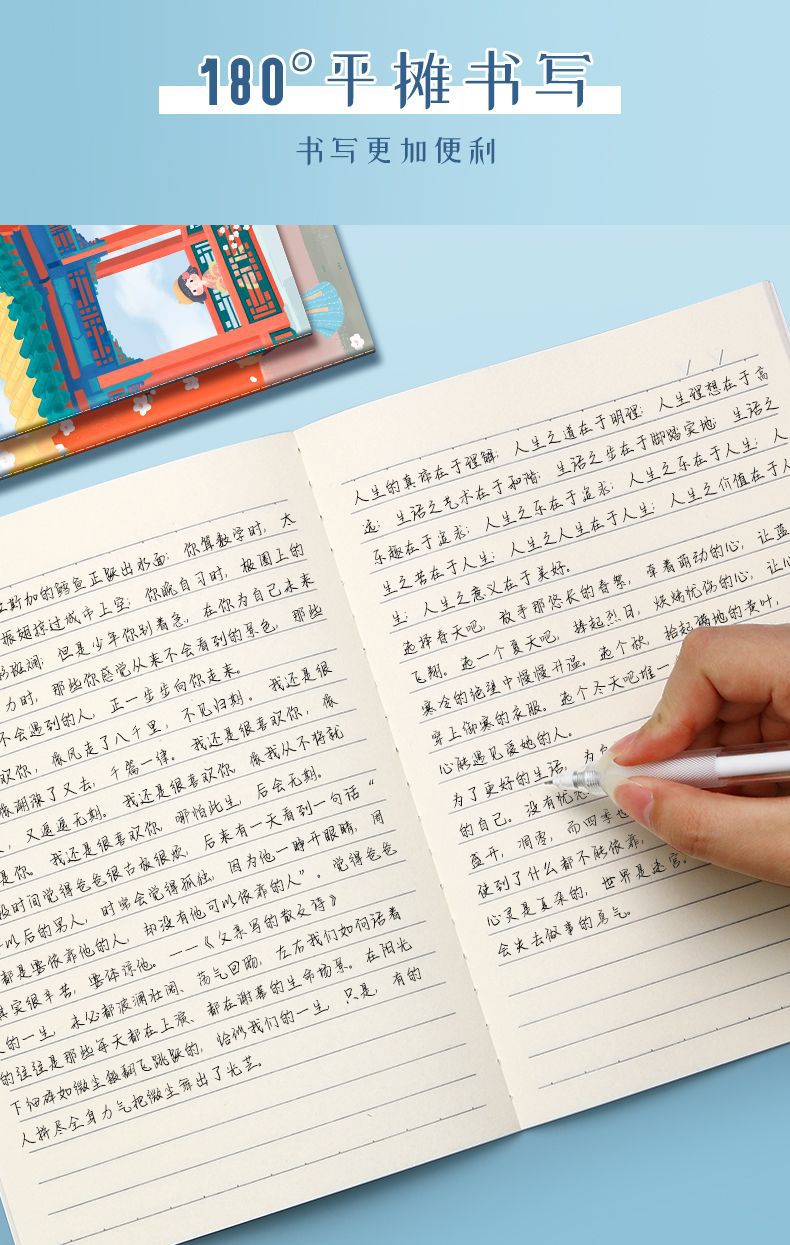 180°平摊书写
书写更加便利
斯加的鳕鱼正跃出水面；你算数学时，太
振翅掠过城市上空；你晚自习时，极圈上的
斑斓，但是少年你别着急，在你为自己未来
力时，那些你感觉从来不会看到的景色，那些
不会遇到的人，正一步步向你走来。
欢你，像风走了八千里，不见归期。我还是很
像潮涨了又去，千篇一律。我还是很喜欢你，像
，又遥遥无期。我还是很喜欢你，像我从不将就
是你。我还是很喜欢你，哪怕此生，后会无期。
段时间觉得爸爸很古板很烦，后来有一天看到一句话“
以后的男人，时常会觉得孤独，因为他一睁开眼睛，周
都是要依靠他的人，却没有他可以依靠的人”。觉得爸爸
其实很辛苦，要体谅他。——《父亲写的散文诗》
的一生，未必都波澜壮阔、荡气回肠，左右我们如何活着
的往往是那些每天都在上演、都在谢幕的生命场景。在阳光
下细碎如微尘般翻飞跳跃的，恰似我们的一生，只是，有的
人拼尽全身力气把微尘舞出了光芒。
人生的真谛在于理解；人生之道在于明理；人生理想在于高
远；生活之艺术在于和谐；生活之步在于脚踏实地；生活之
乐趣在于追求；人生之乐在于追求；人生之乐在于人生；人
生之苦在于人生；人生之人生在于人生；人生之价值在于人
生；人生之意义在于美好。
选择春天吧，放手那悠长的眷系，牵着萌动的心，让蓝
飞翔。选一个夏天吧，捧起烈日，烘烤忧伤的心，让心
寒冷的绝望中慢慢升温。选个秋，拾起满地的黄叶，
穿上御寒的衣服。选个冬天吧堆一
心能遇见爱她的人。
为了更好的生活，为
的自己。没有忧
盛开，凋零，而四季
使到了什么都不能依靠，
心灵是复杂的，世界是迷宫。
会失去做事的勇气。